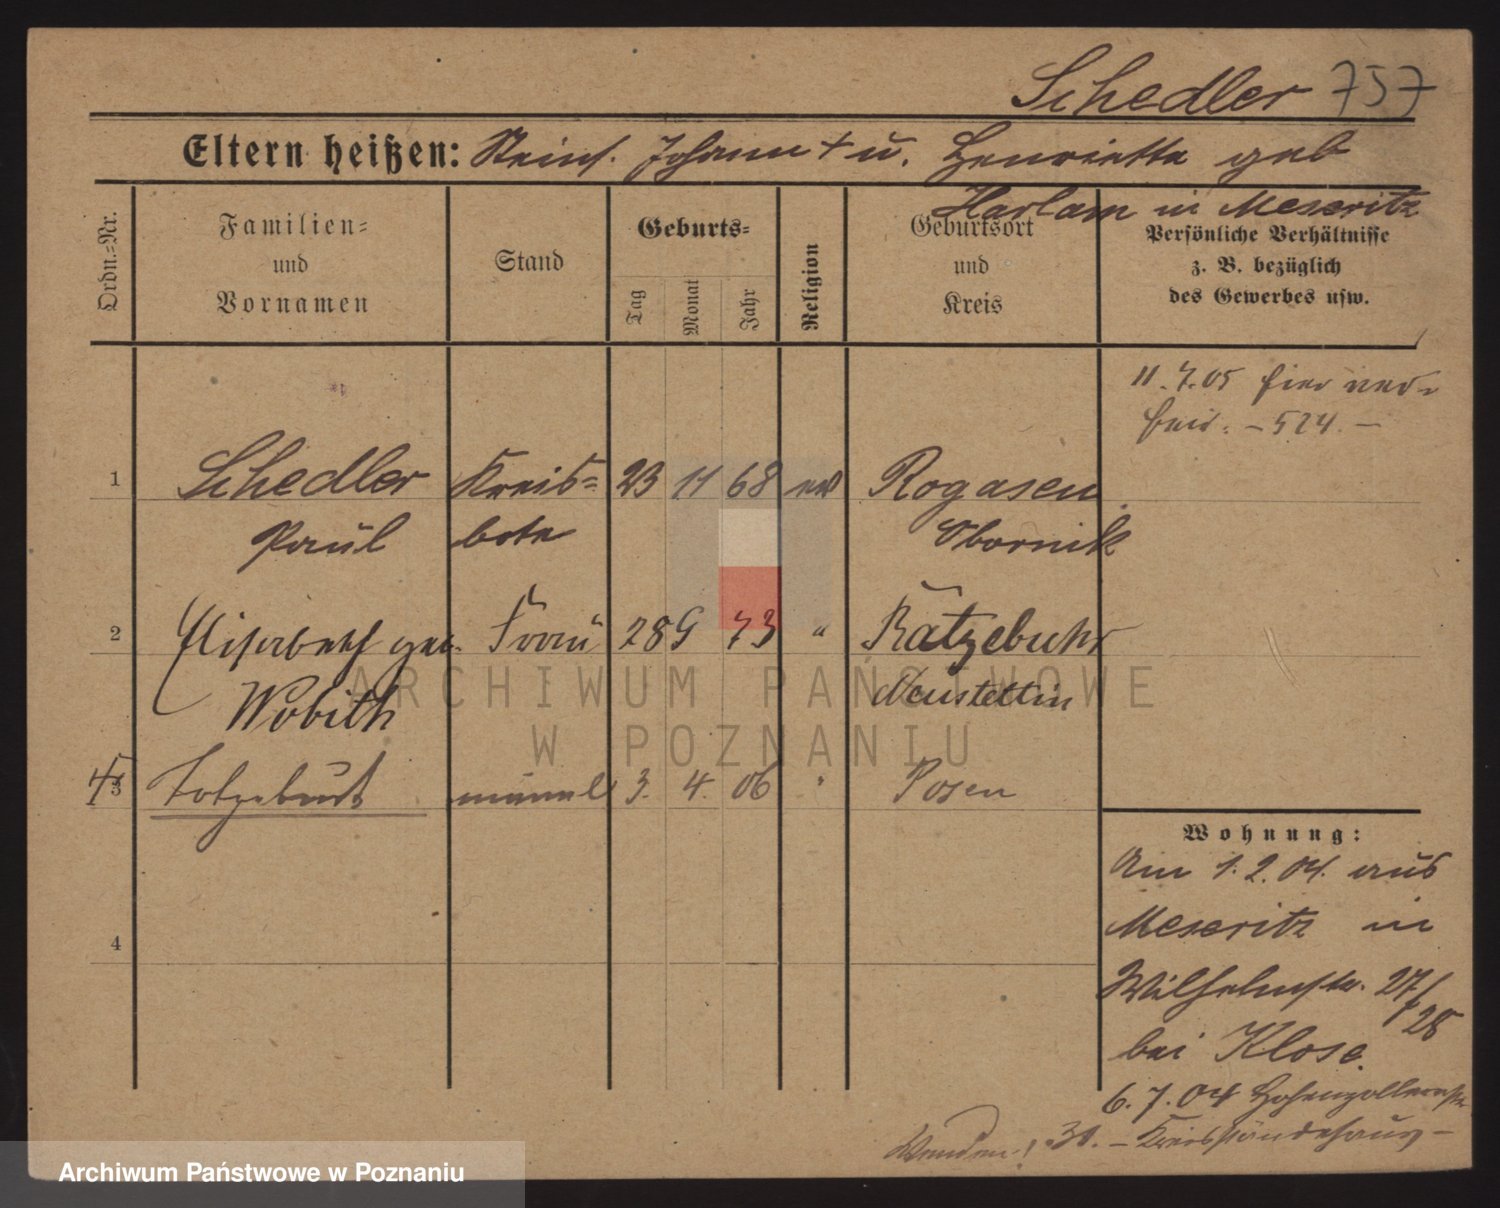 Schedler 757
Eltern heißen: Johann + u. Henriette geb
Harlam in Meseritz
Ordn.=Nr.
Familien=
und
Vornamen
Stand
Geburts=
Tag
Monat
Jahr
Religion
Geburtsort
und
Kreis
Persönliche Verhältnisse
z. B. bezüglich
des Gewerbes usw.
11.7.05 hier ver=
heir. - 524. -
1 Schedler Kreis= 23 11 68 ev Rogasen
Paul bote Obornik
2 Elisabeth geb. Frau 28 9 73 " Ratzebuhr
Wobith Neustettin
3 Totgeburt männl 3. 4. 06 " Posen
4
Wohnung:
Am 1.2.04. aus
Meseritz in
Wilhelmstr. 27/
28
bei Klose.
6.7.04 Hohenzollernstr
30. - Kreisständehaus -
Wenden!
ARCHIWUM PAŃSTWOWE
W POZNANIU
Archiwum Państwowe w Poznaniu